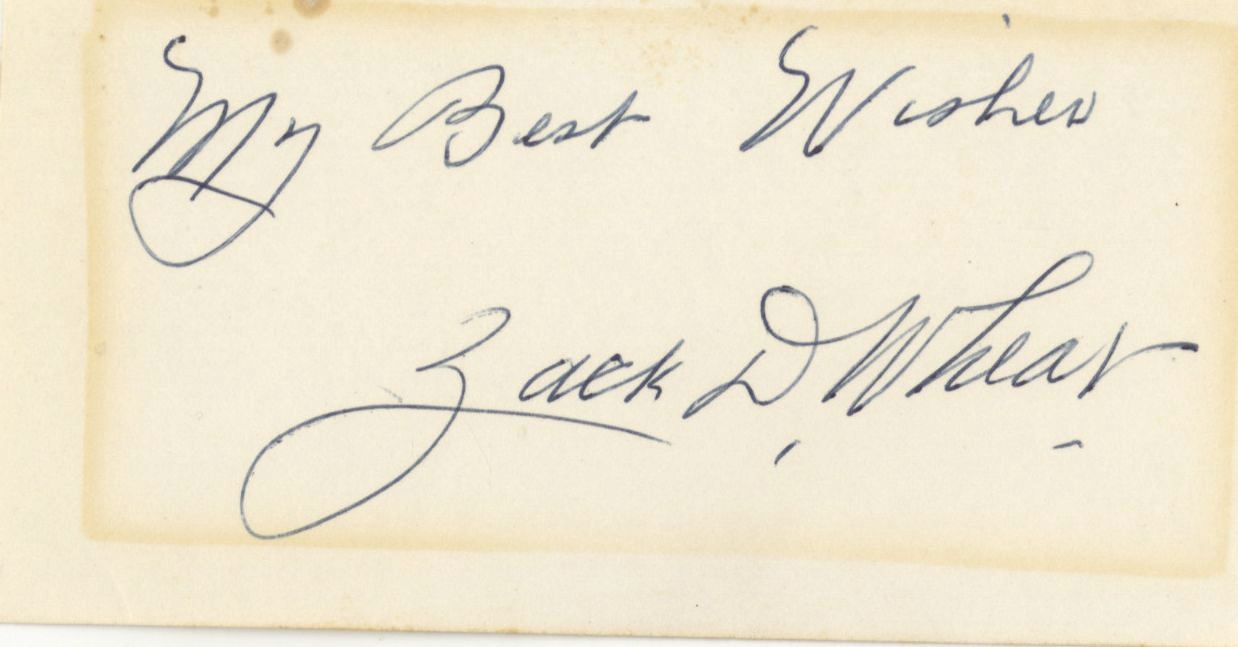 My Best Wishes
Zack D. Wheat